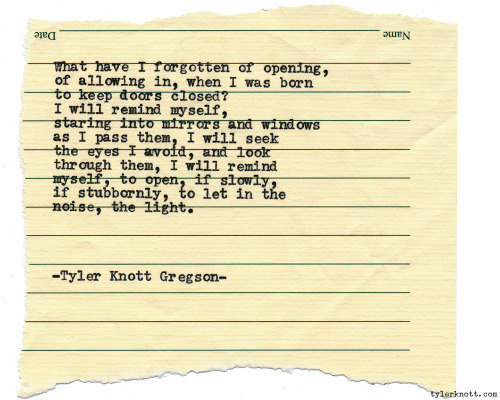 Date Name
What have I forgotten of opening,
of allowing in, when I was born
to keep doors closed?
I will remind myself,
staring into mirrors and windows
as I pass them, I will seek
the eyes I avoid, and look
through them, I will remind
myself, to open, if slowly,
if stubbornly, to let in the
noise, the light.
-Tyler Knott Gregson-
tylerknott.com